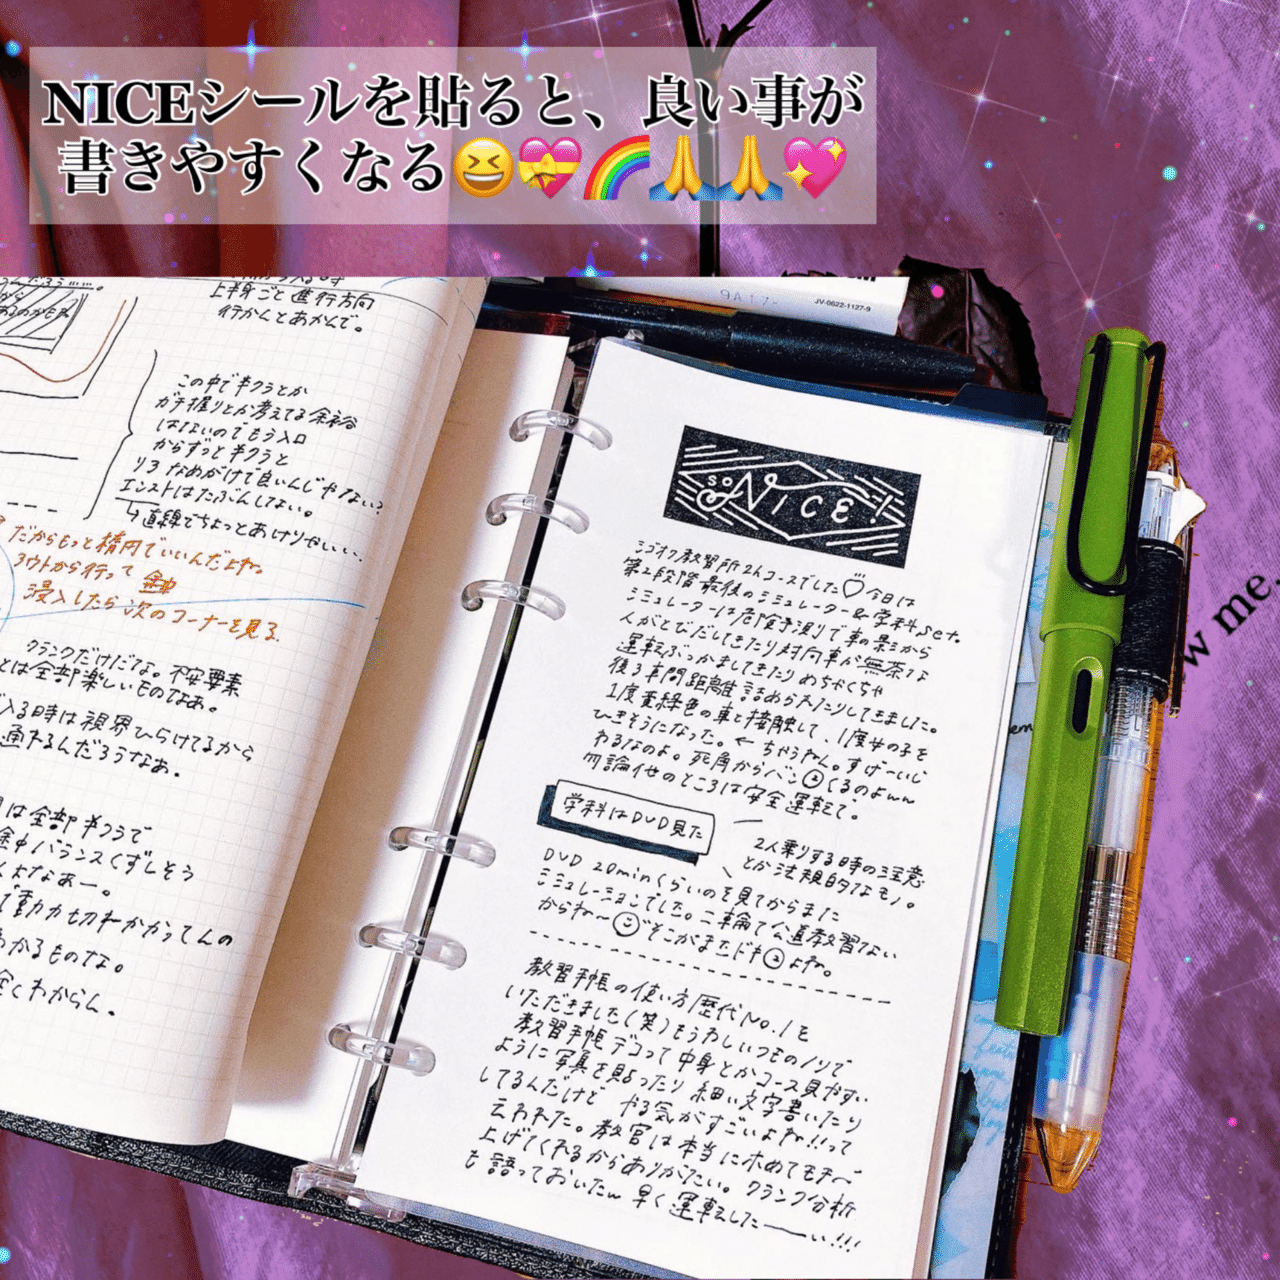 NICEシールを貼ると、良い事が
書きやすくなる😆💝🌈🙏🙏💖
上半身ごと進行方向
行かんとあかんで。
この中で半クラとか
ガチ握りとか考えてる余裕
はないのでもう入口
からずっと半クラと
リアなめがけで良いんじゃない?
エンストはたぶんしない。
↳直線でちょっとあけりゃいい。
だからもっと楕円でいいんだよね。
アウトから行って
浸入したら次のコーナーを見る。
クランクだけだな。不安要素
とは全部楽しいものなぁ。
入る時は視界ひらけてるから
通れるんだろうなあ。
は全部半クラで
中バランスくずしそう
よなあー。
動力切れかかってんの
わかるものな。
全くわからん。
9A17
JV-0622-1127-9
SO NICE!
シゴイク教習所2hコースでした♡今日は
第2段階最後のシミュレーター&学科set。
シミュレーターは危険予測で車の影から
人がとびだしてきたり対向車が無茶な
運転ぶっかましてきたりめちゃくちゃ
後ろ車間距離詰められたりしてきました。
1度黄緑色の車と接触して、1度女の子を
ひきそうになった。←ちゃうねん。すげーいじ
わるなのよ。死角からバン　くるのよww
勿論他のところは安全運転で。
学科はDVD見た
2人乗りする時の注意
とか法規的なモノ。
DVD 20minくらいのを見てからまた
シミュレーションでした。二輪て公道教習ない
からね〜　そこがまたドキ　よね。
教習手帳の使い方歴代No.1を
いただきました(笑)もうねいつものノリで
教習手帳デコって中身とかコース見やすい
ように写真を貼ったり細い文字書いたり
してるんだけど やる気がすごいよね!!って
云われた。教官は本当にホめてモチ〜
上げてくれるからありがたい。クランク分析
も語っておいたw 早く運転した──い!!!
w me.